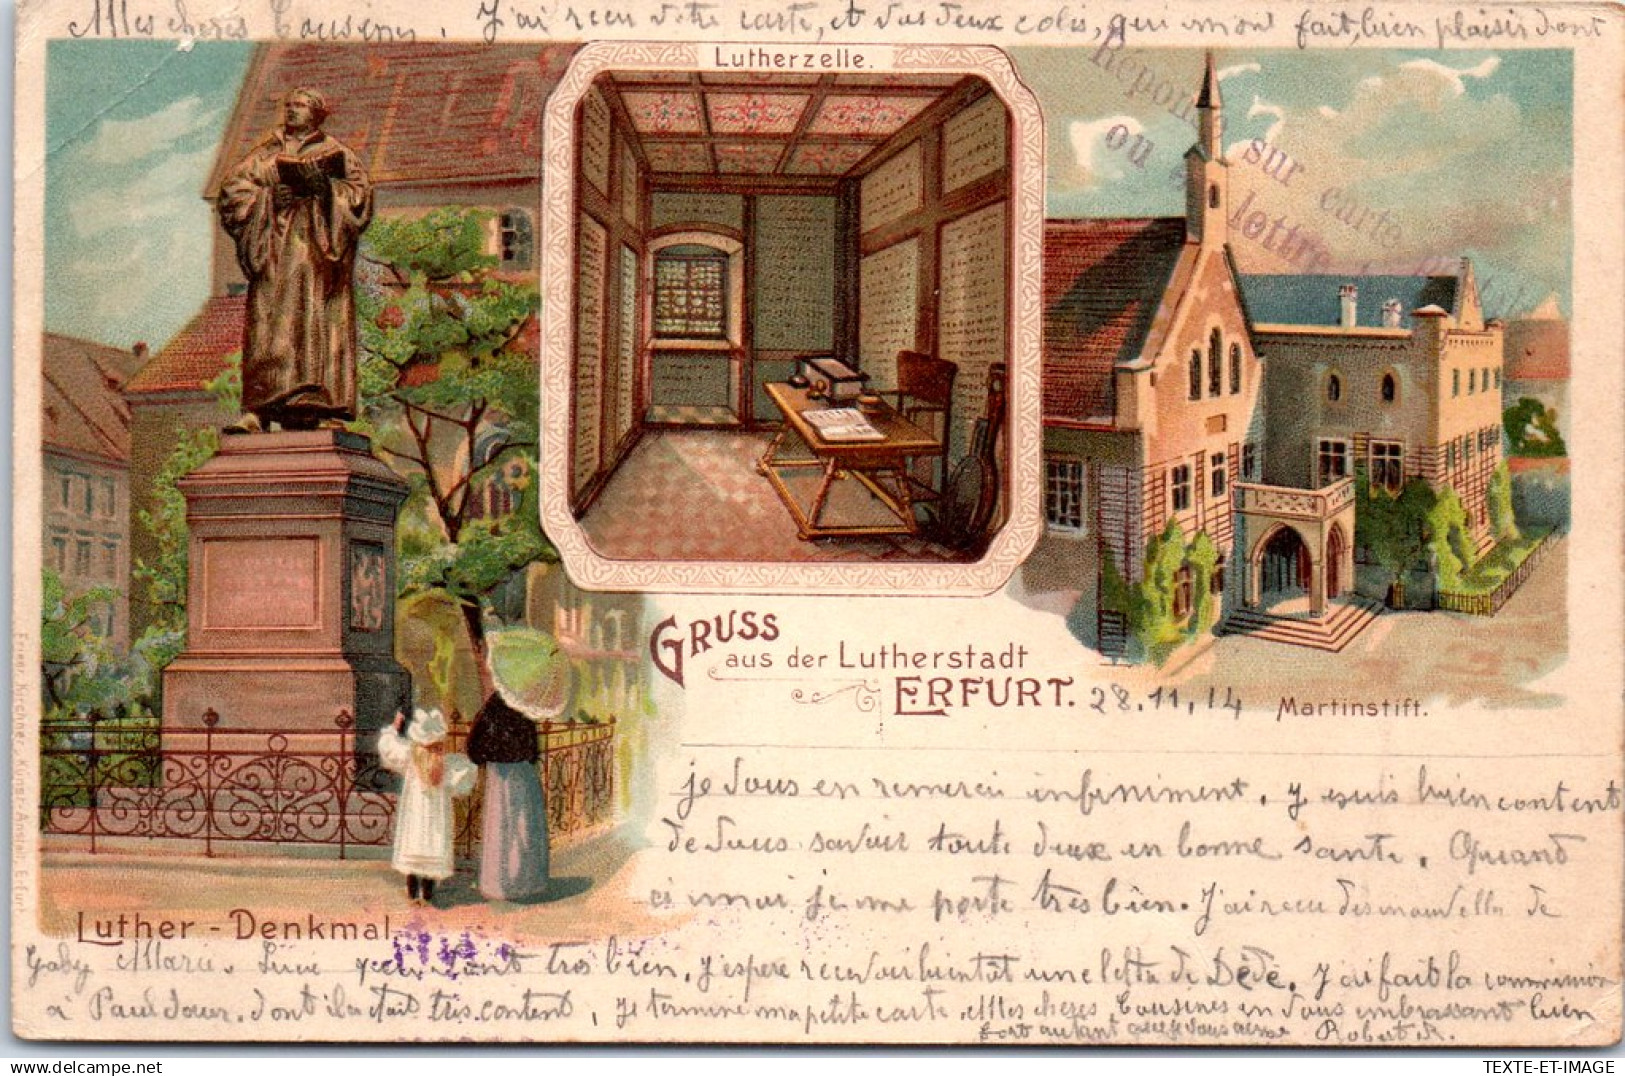 Mes cheres Cousines. J'ai recu votre carte, et vos deux colis, qui m'ont fait, bien plaisir dont
Lutherzelle.
Réponse sur carte
ou lettre
GRUSS
aus der Lutherstadt
ERFURT. 28.11.14
Martinstift.
je vous en remerci infiniment. J suis bien content
de vous savoir toute deux en bonne sante. Quand
a moi je me porte tres bien. J'ai recu des nouvelles de
Luther-Denkmal.
Gaby Marie. Lucie qui vont tres bien. J'espere recevoir bientôt une lettre de Dédé. J'ai fait la commission
à Paul dont il etait tres content, je termine ma petite carte Mes cheres Cousines en vous embrassant bien
fort autant que je vous aime Robert R.
Frieur Kirchner, Kunst-Anstalt, Erfurt
TEXTE-ET-IMAGE